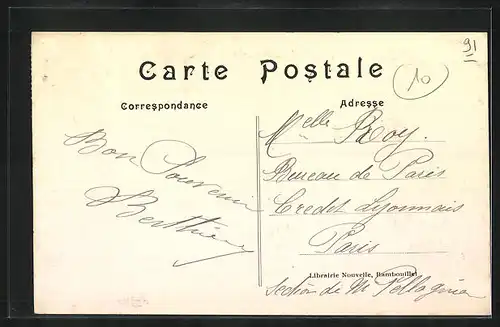 91
10
Carte Postale
Correspondance
Adresse
Bon Souvenir
Berthe
Melle Roy.
Bureau de Paris
Credet Lyonnais
Paris
Librairie Nouvelle, Rambouillet
Section de Mr Pellagnia